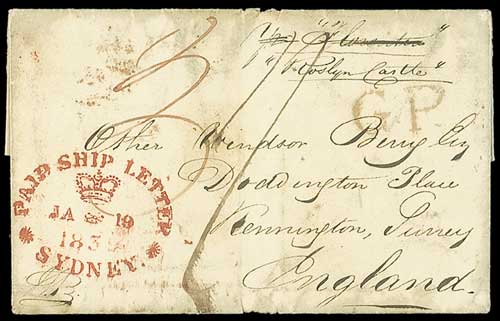 "Florentia"
"Roslyn Castle"
GP
Other Windsor Berry Esq
Doddington Place
Kennington, Surrey
England.
PAID SHIP LETTER
JA 19
1839
SYDNEY.